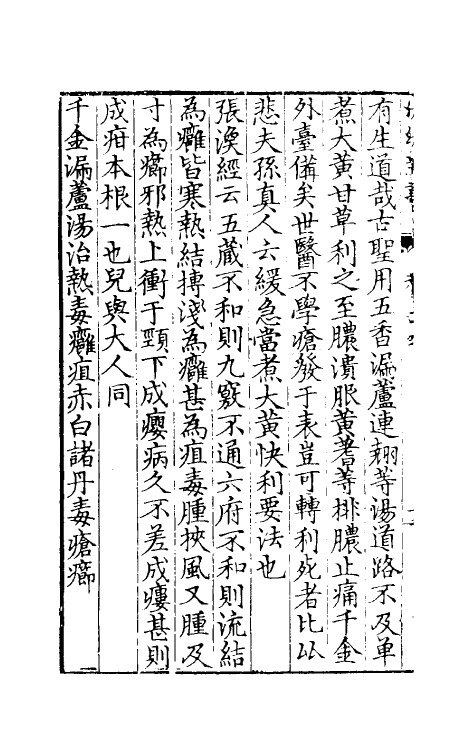 有生道哉古聖用五香漏蘆連翹等湯道路不及單
煮大黃甘草利之至膿潰服黃耆等排膿止痛千金
外臺備矣世醫不學瘡發于表豈可轉利死者比比
悲夫孫真人云緩急當煮大黃快利要法也
張渙經云五蔵不和則九竅不通六府不和則流結
為癰皆寒熱結摶淺為癰甚為疽毒腫挾風又腫及
寸為癤邪熱上衝于頸下成癭病久不差成瘻甚則
成疳本根一也兒與大人同
千金漏蘆湯治熱毒癰疽赤白諸丹毒瘡癤